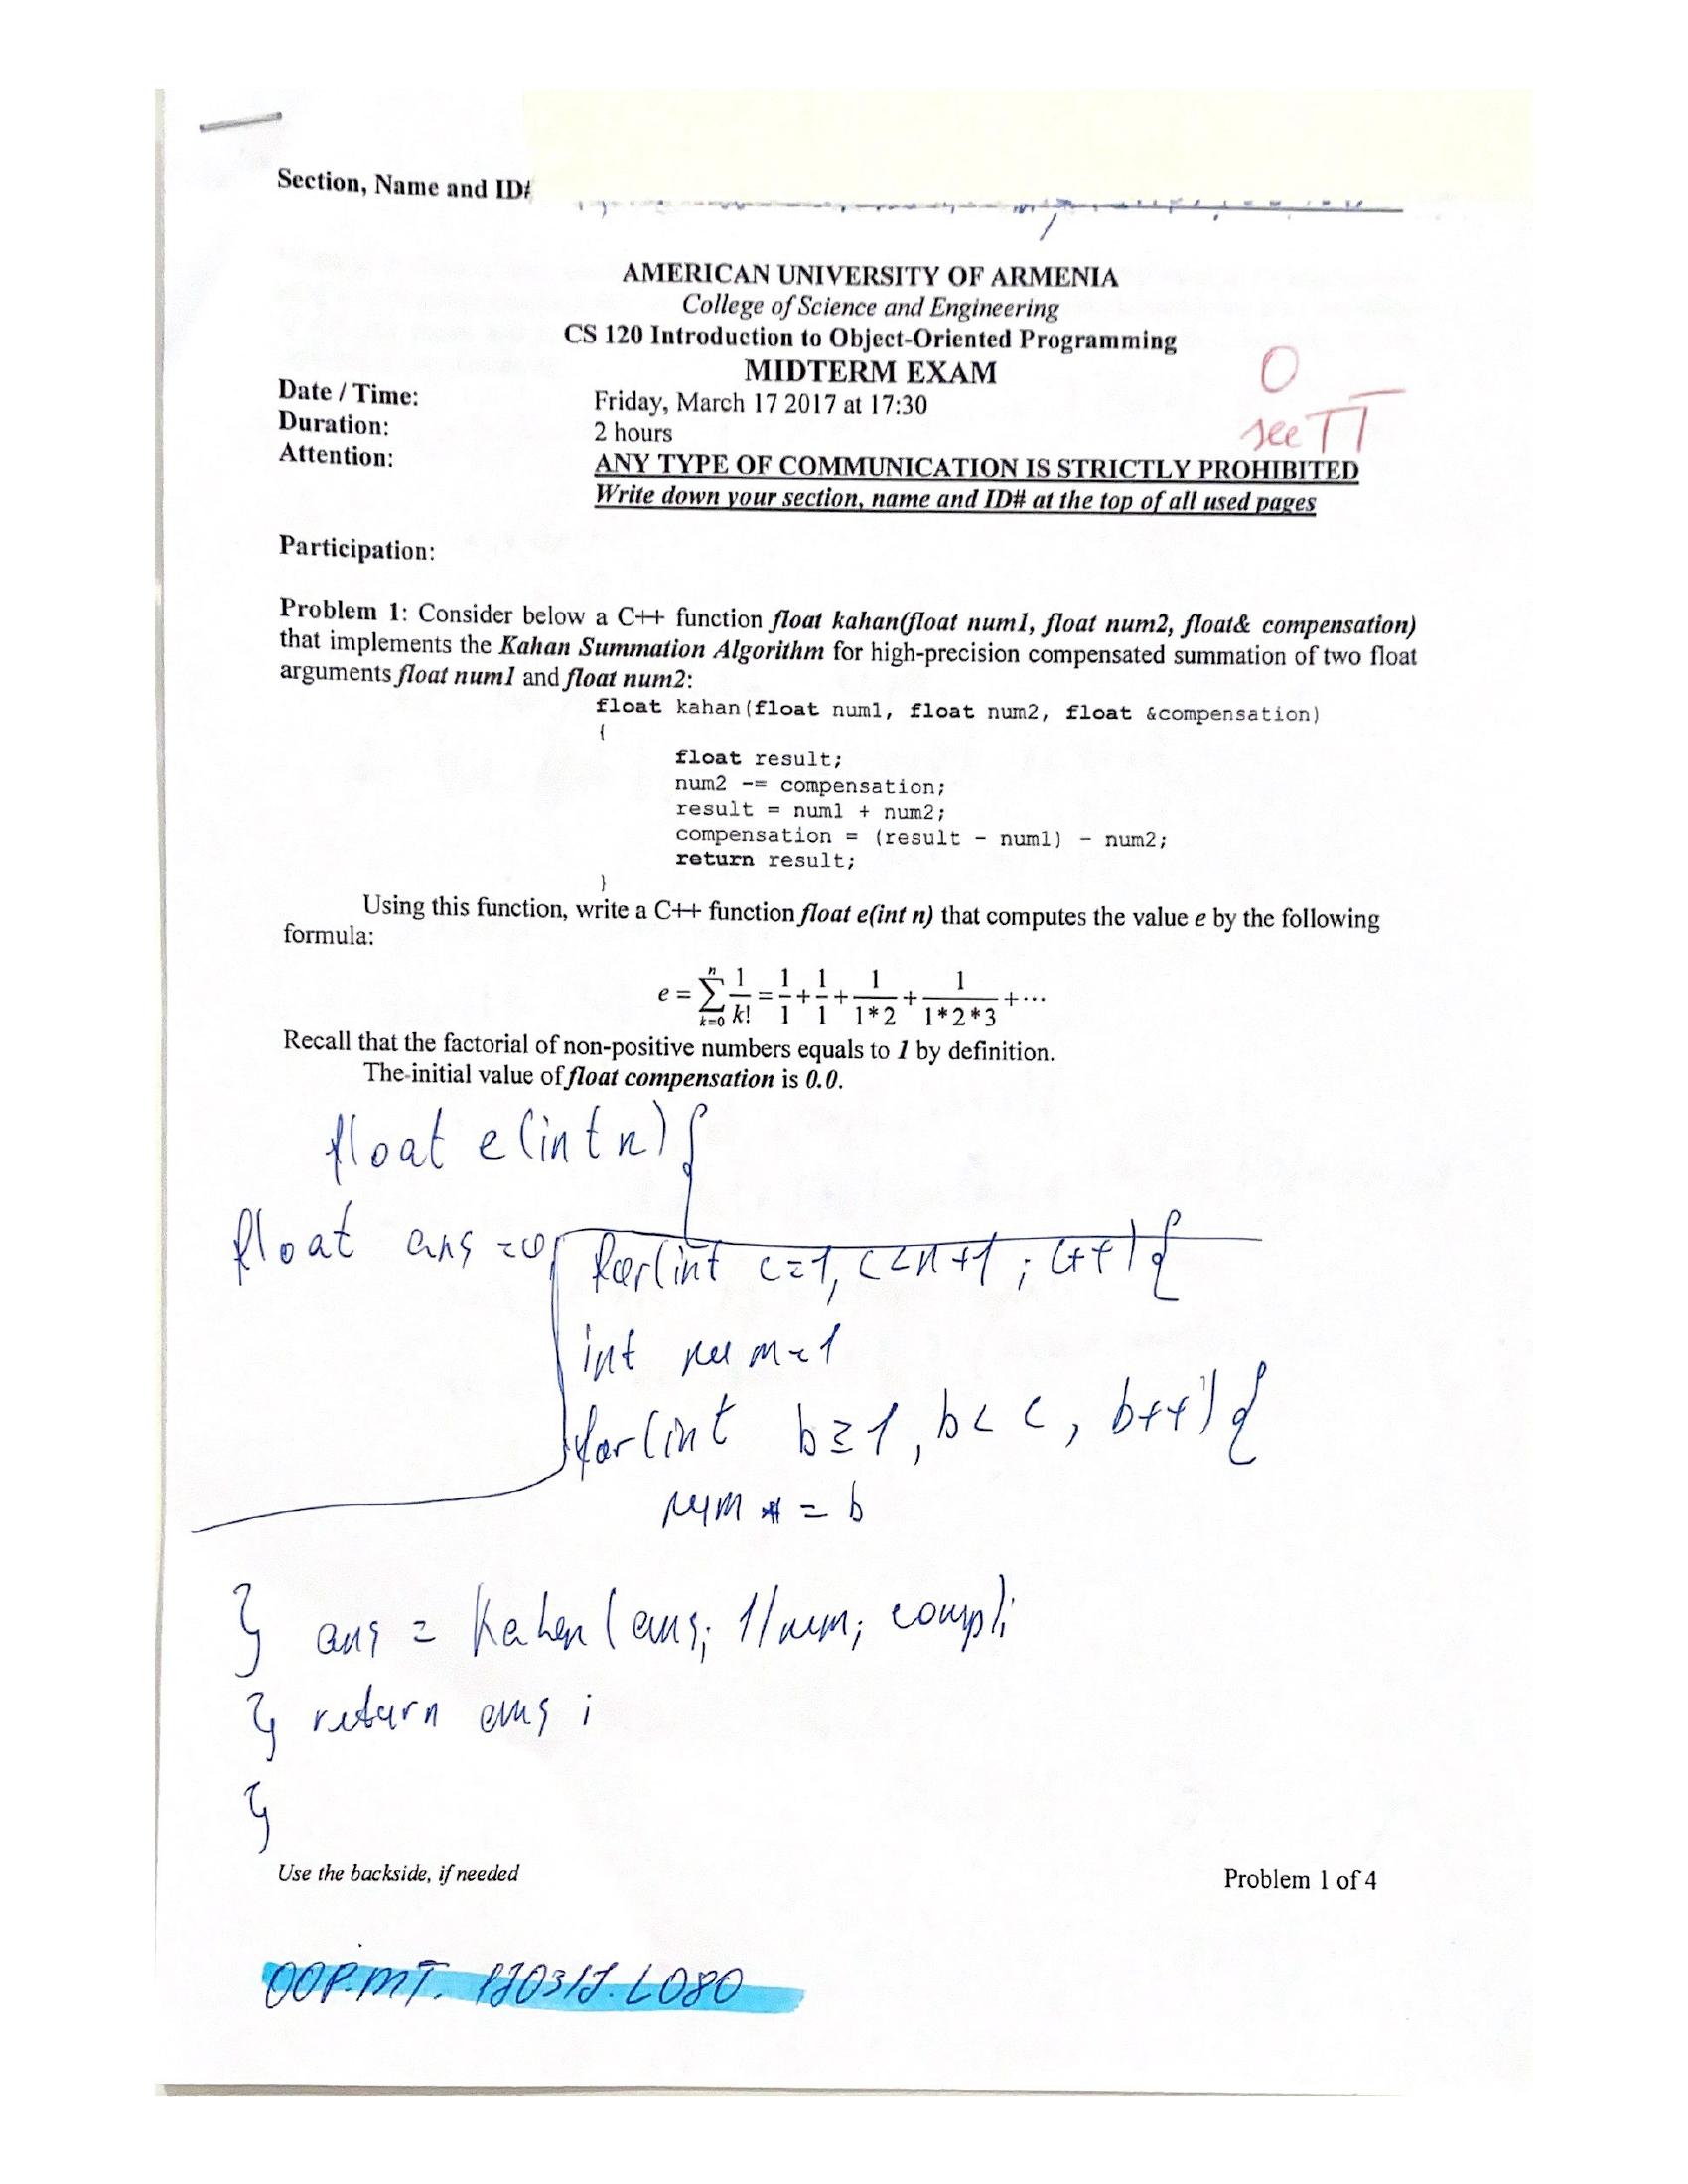 Section, Name and ID#
AMERICAN UNIVERSITY OF ARMENIA
College of Science and Engineering
CS 120 Introduction to Object-Oriented Programming
MIDTERM EXAM
0
see TT
Date / Time: Friday, March 17 2017 at 17:30
Duration: 2 hours
Attention: ANY TYPE OF COMMUNICATION IS STRICTLY PROHIBITED
Write down your section, name and ID# at the top of all used pages
Participation:
Problem 1: Consider below a C++ function float kahan(float num1, float num2, float& compensation)
that implements the Kahan Summation Algorithm for high-precision compensated summation of two float
arguments float num1 and float num2:
float kahan(float num1, float num2, float &compensation)
{
float result;
num2 -= compensation;
result = num1 + num2;
compensation = (result - num1) - num2;
return result;
}
Using this function, write a C++ function float e(int n) that computes the value e by the following
formula:
e = \sum_{k=0}^{n} \frac{1}{k!} = \frac{1}{1} + \frac{1}{1} + \frac{1}{1*2} + \frac{1}{1*2*3} + ⋯
Recall that the factorial of non-positive numbers equals to 1 by definition.
The initial value of float compensation is 0.0.
float e(int n) {
float ans =0; for(int c=1, c<n+1 ; c++) {
int num=1
for(int b=1, b< c, b++) {
num *= b
} ans = Kahan (ans; 1/num; comp);
} return ans ;
}
Use the backside, if needed
Problem 1 of 4
OOP.MT. 170317.L080